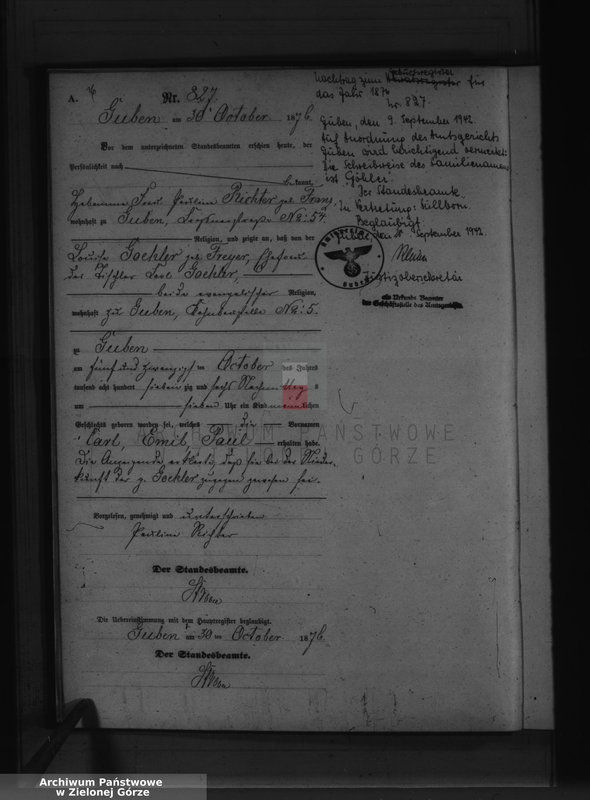 A. 6 Nr. 827.
Guben am 30 October 1876.
Vor dem unterzeichneten Standesbeamten erschien heute, der
Persönlichkeit nach
bekannt,
Hebamme Frau Pauline Richter geb. Franz,
wohnhaft zu Guben, No: 54
Religion, und zeigte an, daß von der
Louise Goehler geb. Freyer, Ehefrau
des Tischler Carl Goehler,
beide evangelischer Religion,
wohnhaft zu Guben, No: 5.
zu Guben
am fünf und zwanzigsten October des Jahres
tausend acht hundert siebenzig und sechs Nachmittags
um sieben Uhr ein Kind männlichen
Geschlechts geboren worden sei, welches die Vornamen
Carl, Emil Paul erhalten habe.
Die Anzeigende erklärte, daß sie bei der Nieder-
kunft der p. Goehler zugegen gewesen sei.
Vorgelesen, genehmigt und unterschrieben
Pauline Richter
Der Standesbeamte.
Die Uebereinstimmung mit dem Hauptregister beglaubigt.
Guben am 30 ten October 1876.
Der Standesbeamte.
Nachtrag zum Geburtsregister für
das Jahr 1876
Nr. 827.
Guben, den 9. September 1942.
Auf Anordnung des Amtsgerichts
Guben wird berichtigend vermerkt:
Die Schreibweise des Familiennamens
ist "Göhler".
Der Standesbeamte
In Vertretung: Süllborn.
Beglaubigt
Guben, den September 1942.
Amtsgericht
Guben
Justizobersekretär
als Urkunds Beamter
der Geschäftsstelle des Amtsgerichts
ARCHIWUM PAŃSTWOWE
W ZIELONEJ GÓRZE
Archiwum Państwowe
w Zielonej Górze